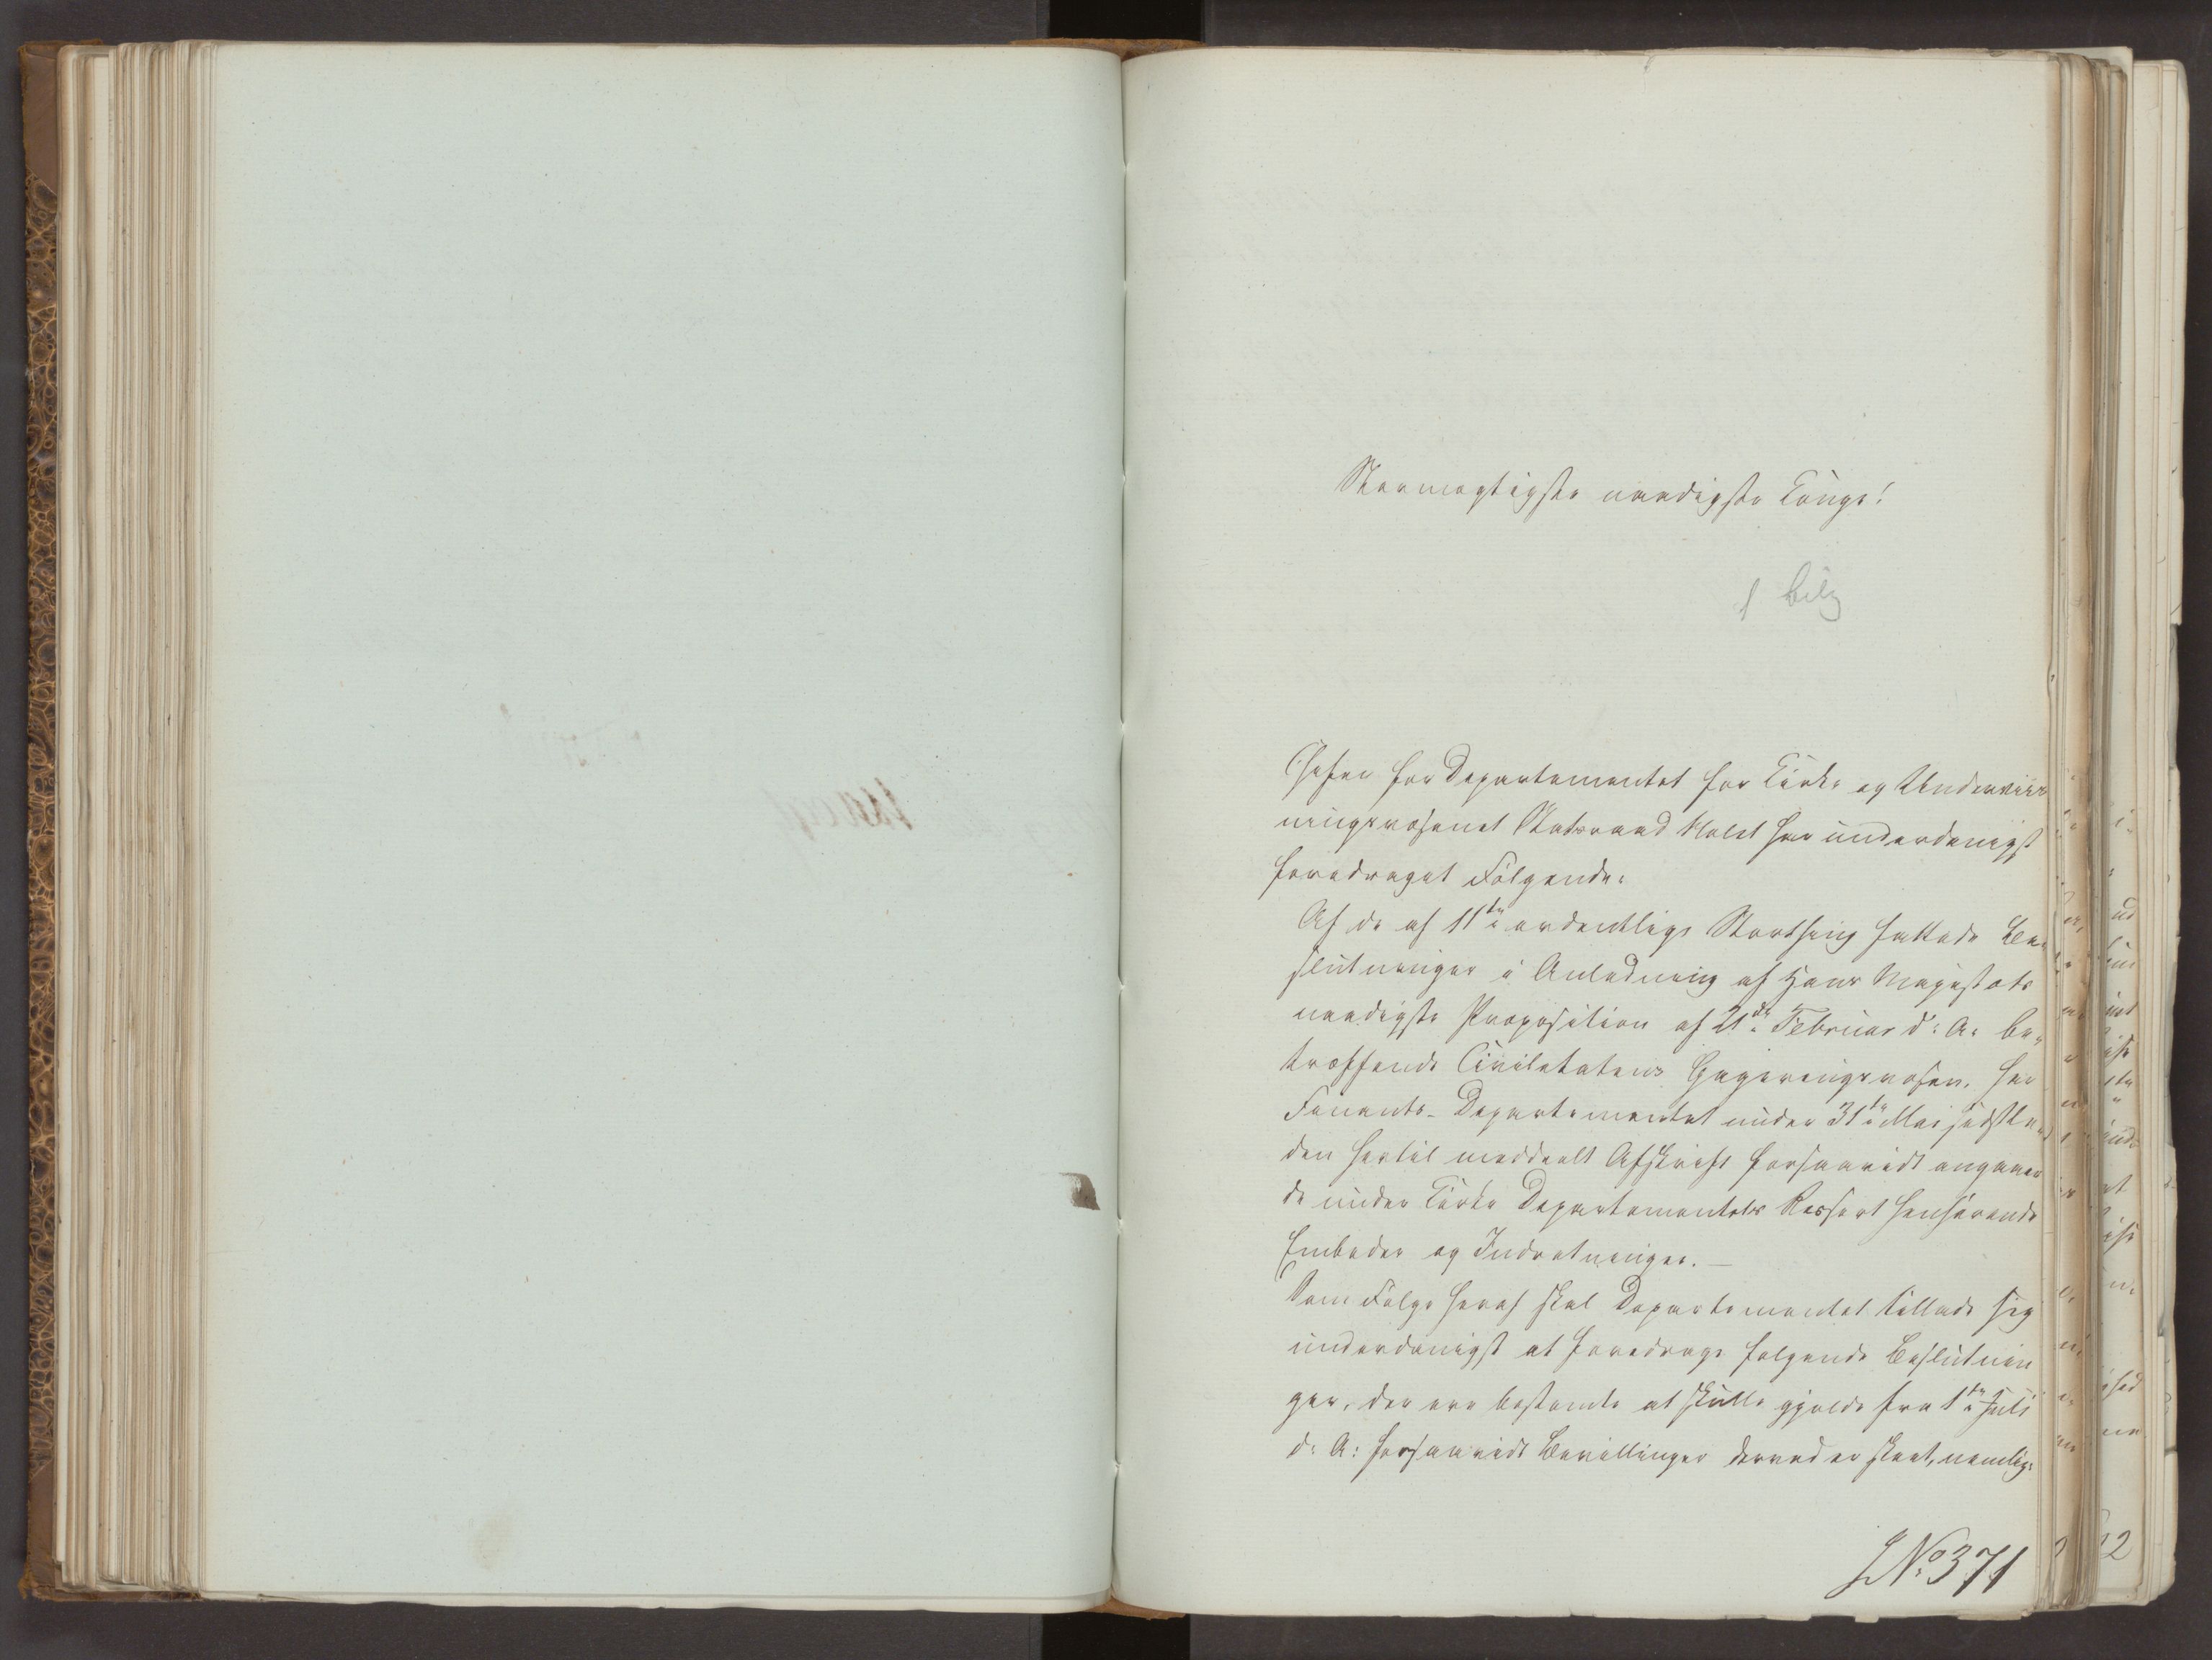 Stormægtigste naadigste Konge!
1 bilg
Chefen for Departementet for Kirke og Underviis
ningsvæsenet Statsraad Holst har underdanigst
foredraget Følgende:
Af de af 11te ordentlige Storthing fattede Be-
slutninger i Anledning af Hans Majestæts
naadigste Proposition af 21de Februar d: A: be-
træffende Civiletatens Gageringsvæsen, har
Finants-Departementet under 31te Mai sidstle-
den hertil meddeelt Afskrift forsaavidt angaaen
de under Kirke Departementets Ressort henhørende
Embeder og Indretninger.
Som Følge heraf skal Departementet tillade sig
underdanigst at foredrage følgende Beslutnin
ger, der ere bestemte at skulle gjelde fra 1te Juli
d: A: forsaavidt Bevillinger derved er skeet, nemlig:
JNo: 371